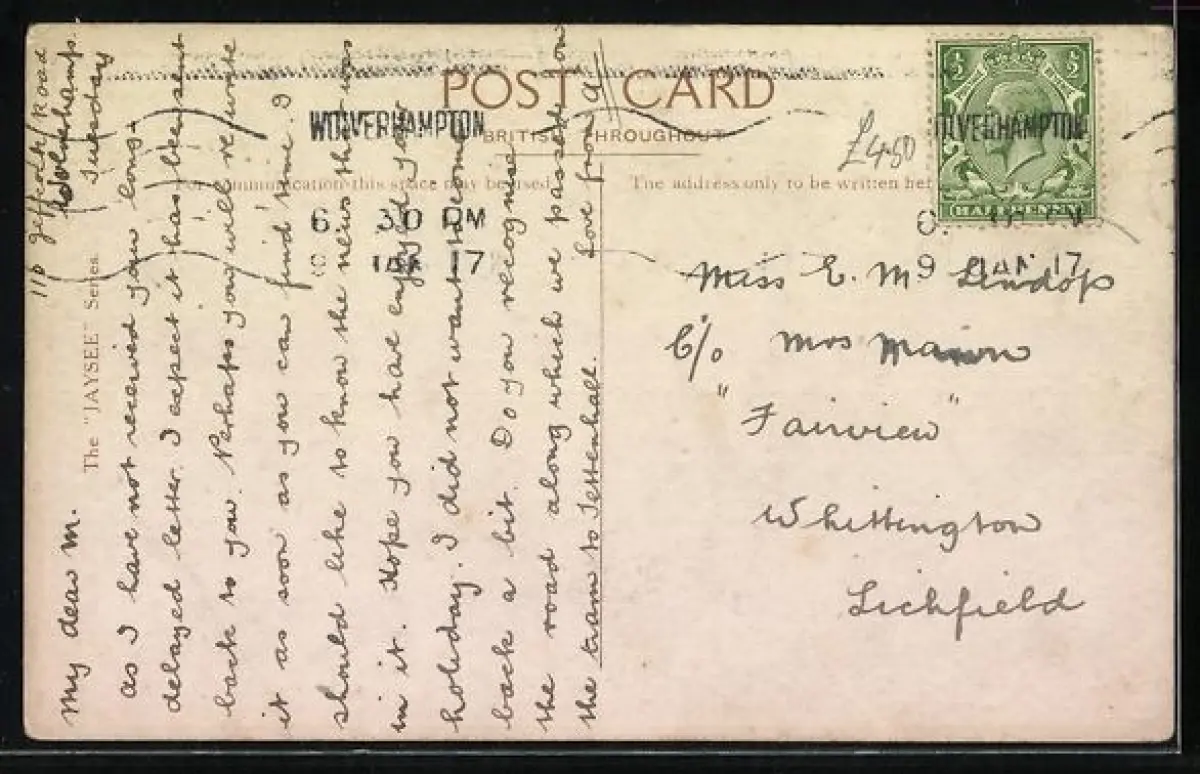 POST CARD
BRITISH THROUGHOUT
For communication this space may be used
The address only to be written her
The "JAYSEE" Series.
WOLVERHAMPTON
6. 30 PM
9 JAN 17
WOLVERHAMPTON
9 JAN 17
HALFPENNY
£4.50
110 Jeffcock Road
Wolverhampt.
Tuesday
My dear M.
as I have not received your long-
delayed letter. I expect it has been sent
back to you. Perhaps you will re write
it as soon as you can find time. I
should like to know the news that was
in it. Hope you have enjoyed your
holiday. I did not want to come
back a bit. Do you recognise
the road along which we passed on
the tram to Tettenhall.
Love from A
Miss E. M. Lindops
C/o Mrs Mann
"Fairview"
Whittington
Lichfield